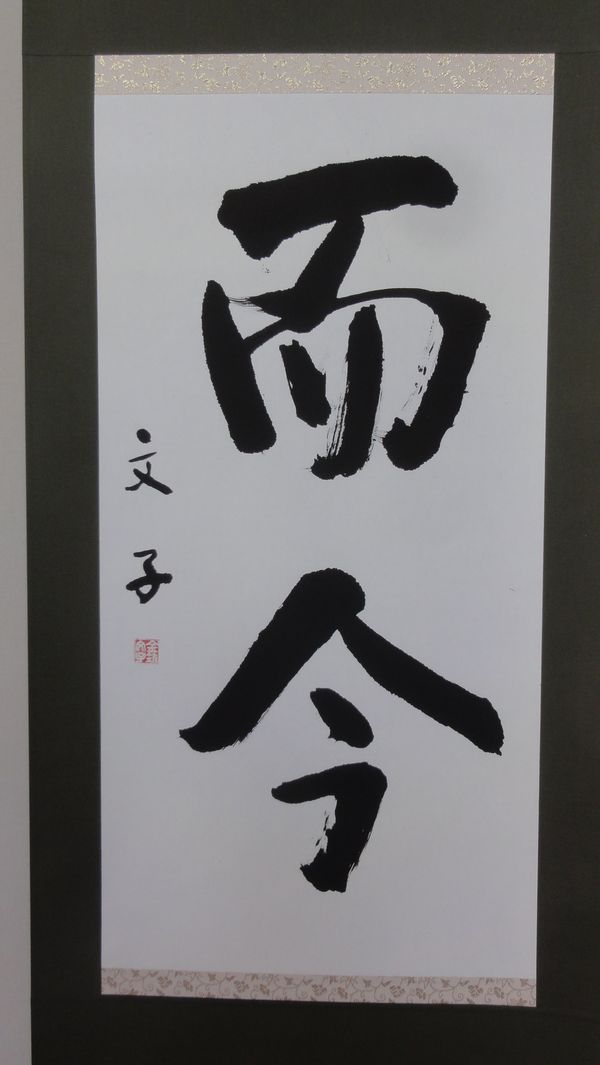 而今
文子